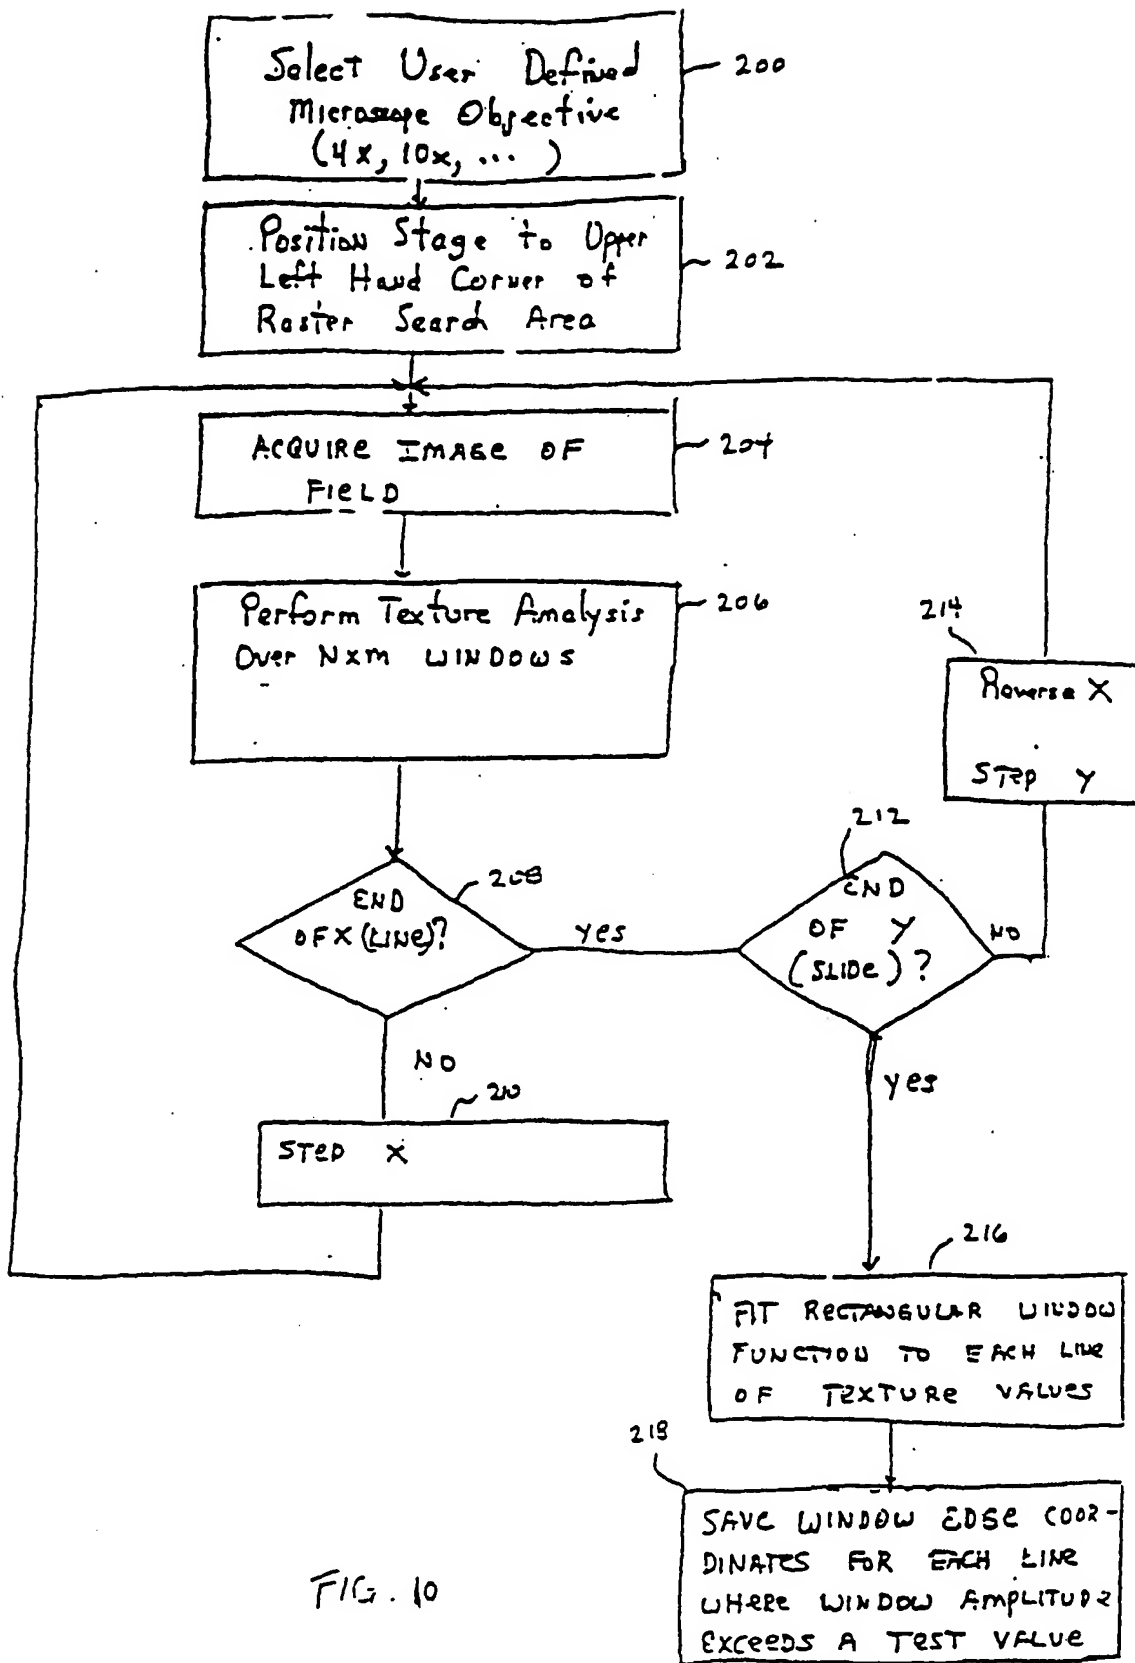 Select User Defined
Microscope Objective
(4x, 10x, ... )
200
Position Stage to Upper
Left Hand Corner of
Raster Search Area
202
ACQUIRE IMAGE OF
FIELD
204
Perform Texture Analysis
Over NxM WINDOWS
206
214
Reverse X
STEP Y
END
OF X (LINE)?
208
yes
212
END
OF Y
(SLIDE)?
NO
NO
210
STEP X
yes
216
FIT RECTANGULAR WINDOW
FUNCTION TO EACH LINE
OF TEXTURE VALUES
218
SAVE WINDOW EDGE COOR-
DINATES FOR EACH LINE
WHERE WINDOW AMPLITUDE
EXCEEDS A TEST VALUE
FIG. 10